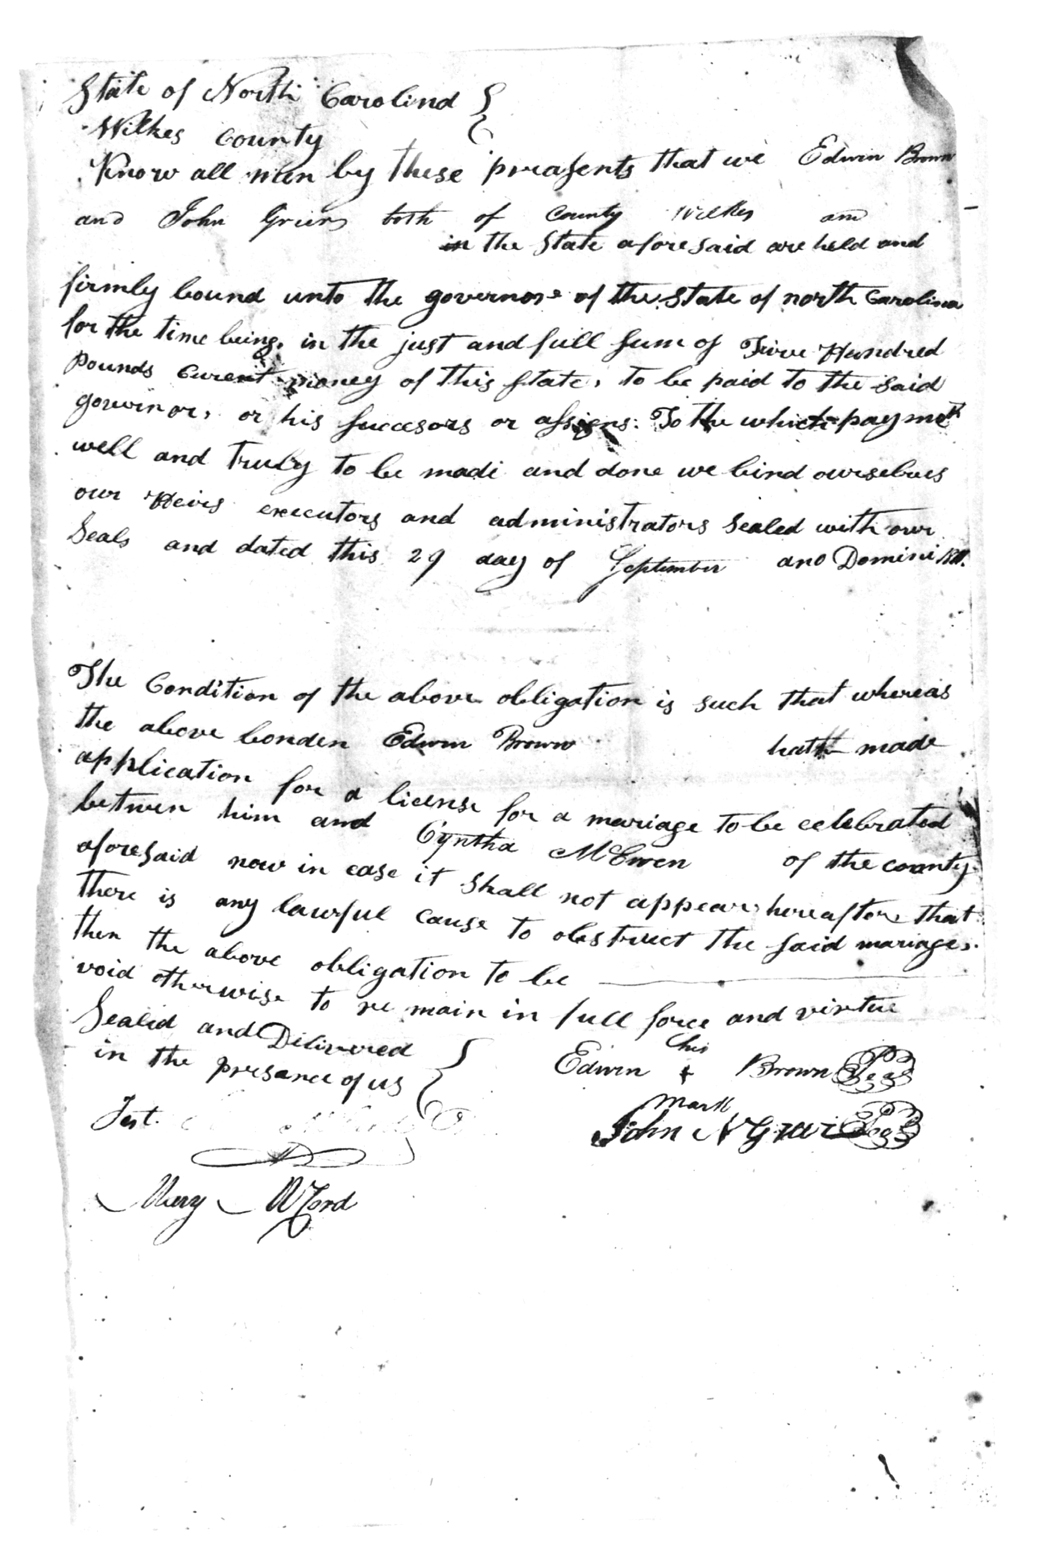 State of North Carolina
Wilkes County
Know all men by these preasents that we Edwin Brown
and John Greer both of County Wilkes and
in the State aforesaid are held and
firmly bound unto the governor of the State of north Carolina
for the time being, in the just and full sum of Five Hundred
Pounds Curent money of this State, to be paid to the said
govornor, or his succesors or assigns: To the which paymet
well and truly to be made and done we bind ourselves
our Heirs executors and administrators sealed with our
Seals and dated this 29 day of September ano Domini
The Condition of the above obligation is such that whereas
the above bonden Edwin Brown hath made
application for a license for a mariage to be celebrated
between him and Cyntha McEwen of the county
aforesaid now in case it shall not appear hereafter that
there is any lawful cause to obstruct the said mariage.
then the above obligation to be
void otherwise to remain in full force and virtue
Sealed and Delivered
in the presance of us
Test.
his
Edwin + Brown Seal
mark
John N Greer Seal
Mery